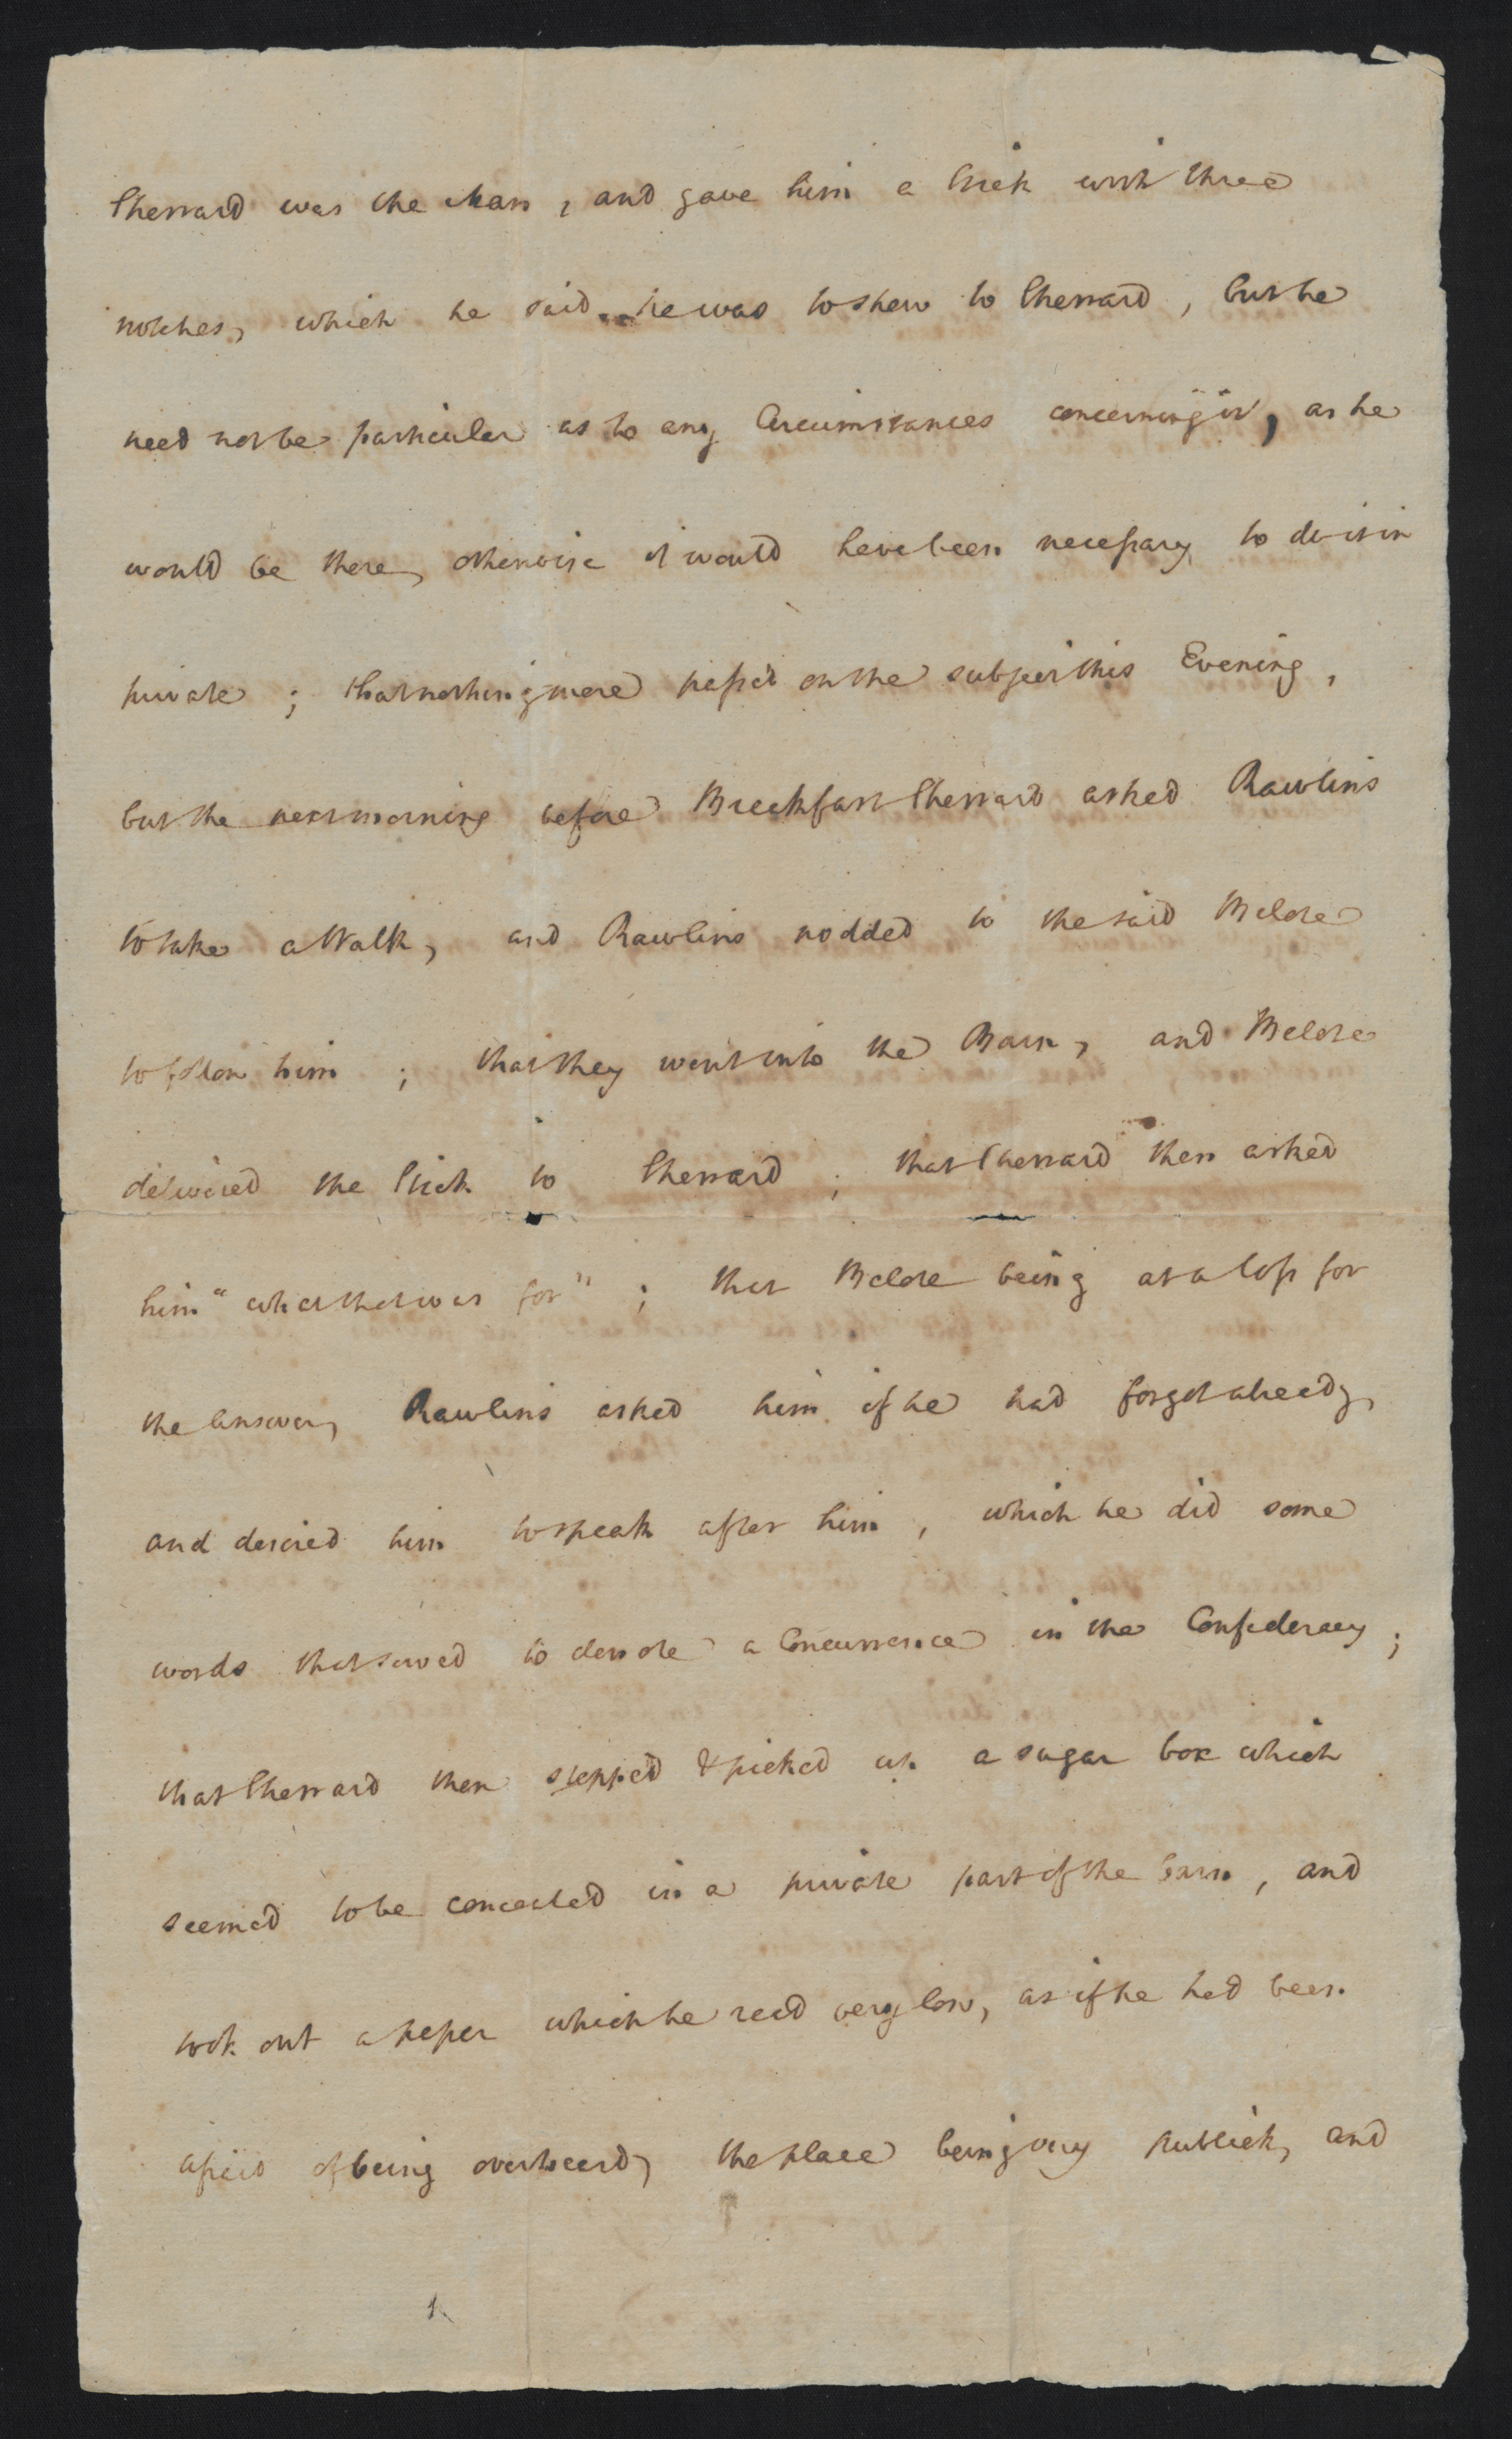 Sherrard was the Man, and gave him a Stick with three
notches, which he said he was to shew to Sherrard, but he
need not be particular as to any Circumstances concerning it, as he
would be there, otherwise it would have been necessary to do it in
private ; that nothing more pass'd on the subject this Evening,
but the next morning before Breakfast Sherrard asked Rawlins
to take a Walk, and Rawlins nodded to the said
to follow him ; that they went into the Barn, and
delivered the Stick to Sherrard ; that Sherrard then asked
him "what that was for" ; that being at a loss for
the answer, Rawlins asked him if he had forgot already,
and desired him to speak after him, which he did some
words that served to denote a Concurrence in the Confederacy ;
that Sherrard then stepped & picked up a sugar box which
seemed to be concealed in a private part of the barn, and
took out a paper which he read very low, as if he had been
afraid of being overheard, the place being very publick, and